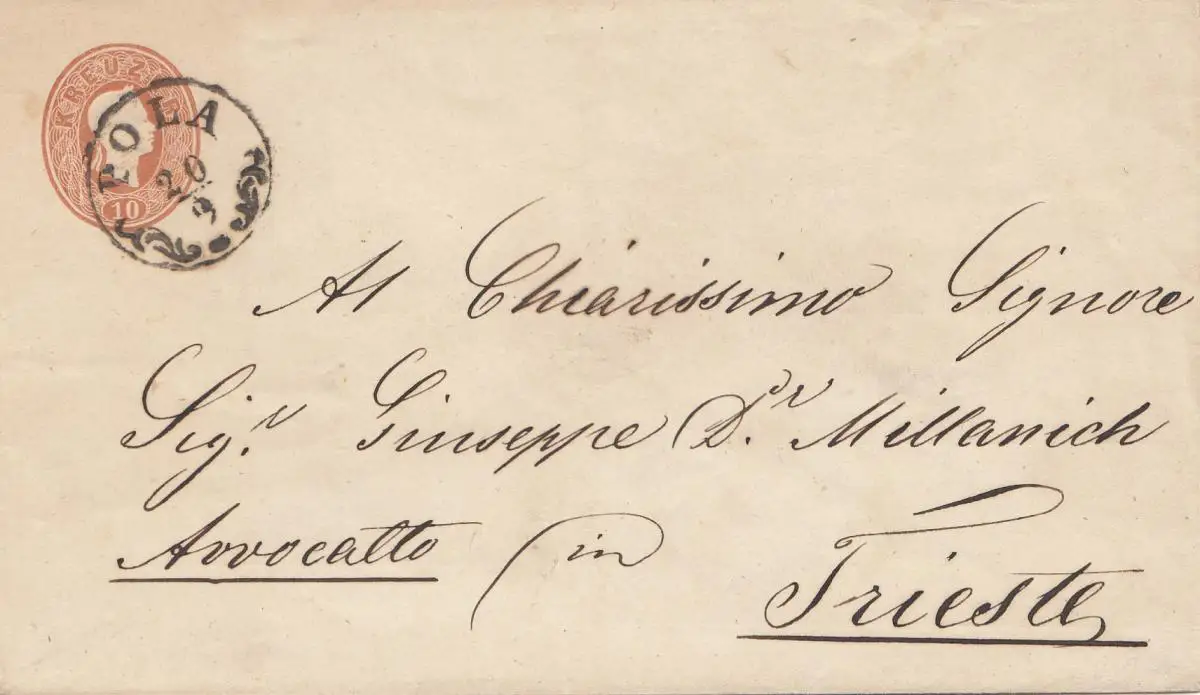 KREUZER
10
POLA
20
9
Al Chiarissimo Signore
Sig.r Giuseppe D.r Millanich
Avvocatto in Trieste